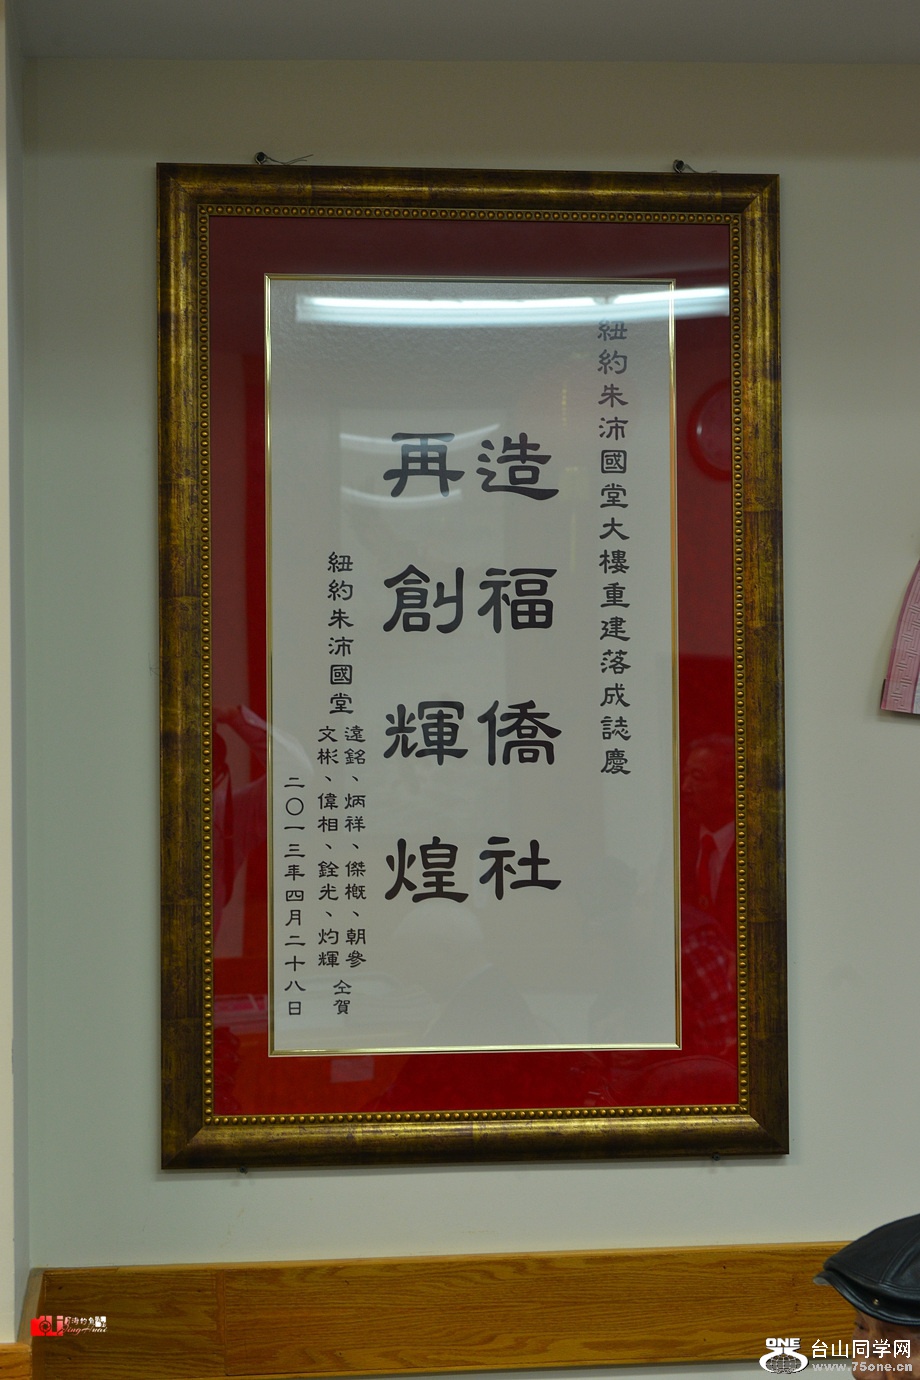 紐約朱沛國堂大樓重建落成誌慶
造福僑社
再創輝煌
紐約朱沛國堂
遠銘、炳祥、傑概、朝參
文彬、偉相、銓光、灼輝
仝賀
二〇一三年四月二十八日
ONE
台山同学网
www.75one.cn